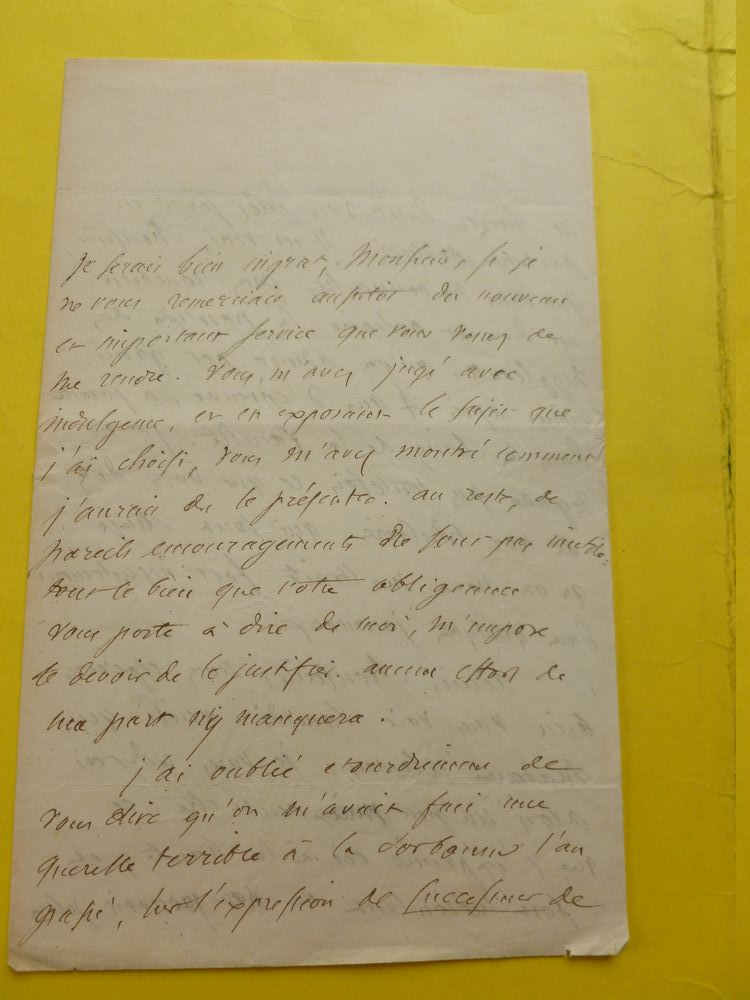 Je serais bien ingrat, Monsieur, si je
ne vous remerciais aussitôt du nouveau
et important service que vous venez de
me rendre. Vous m'avez jugé avec
indulgence, et en exposant le sujet que
j'ai choisi, vous m'avez montré comment
j'aurais du le présenter. au reste, de
pareils encouragements ne sont pas inutiles:
tout le bien que votre obligeance
vous porte à dire de moi, m'impose
le devoir de le justifier. aucun effort de
ma part n'y manquera.
j'ai oublié etourdiment de
vous dire qu'on m'avait fait une
querelle terrible à la Sorbonne l'an
passé, sur l'expression de successeur de